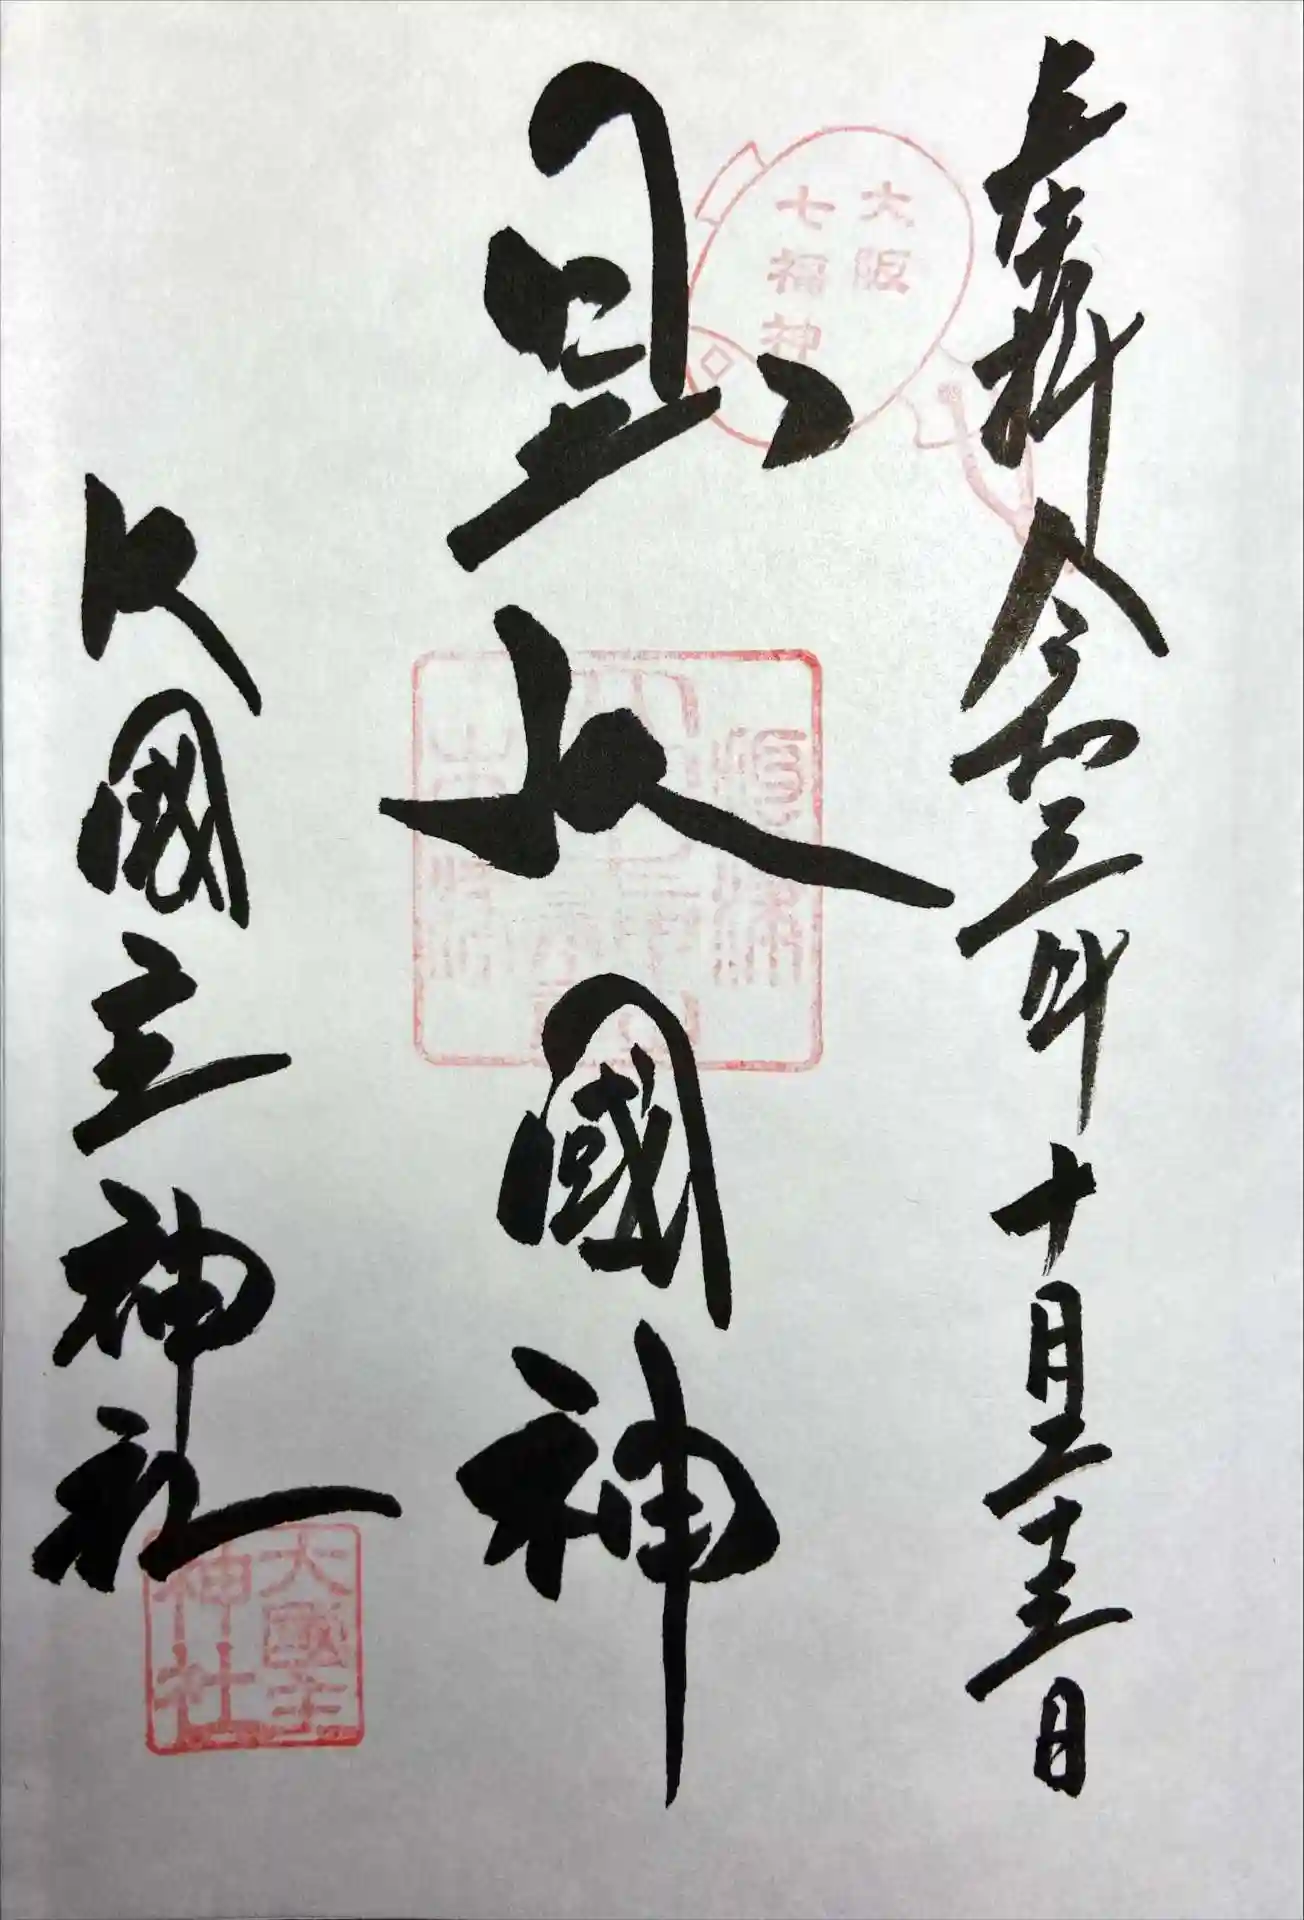 奉拜 令和三年十月二十三日
大阪
七福神
日出大國神
大國主神社
大國主
神社